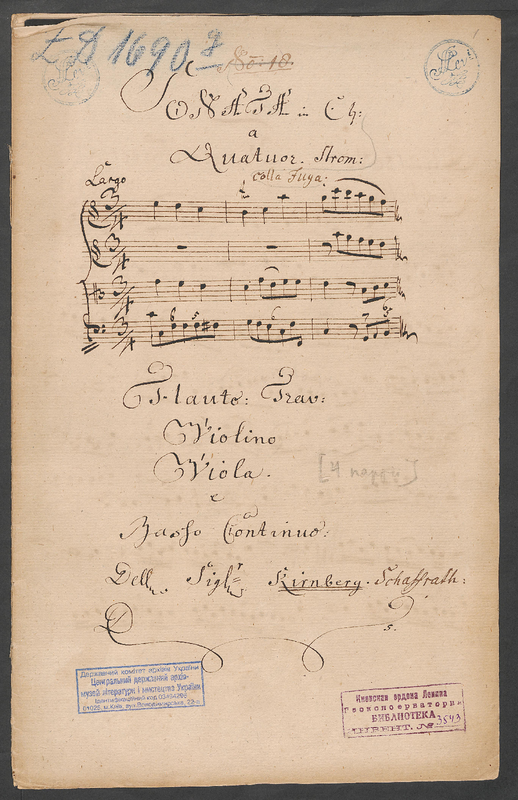 ZD 1690 g
No: 18.
SONATA in Ch:
a
Quatuor. Strom:
colla Fuga:
Largo
Flauto: Trav:
Violino
Viola.
e
Basso Continuo:
Dell Sigl: Kirnberg. Schaffrath:
Державний комітет архівів України
Центральний державний архів-
музей літератури і мистецтва України
Ідентифікаційний код 03494206
01025, м.Київ, вул.Володимирська, 22-а
Киевская ордена Ленина
Госконсерватория
БИБЛИОТЕКА
ИНВЕНТ. № 3643